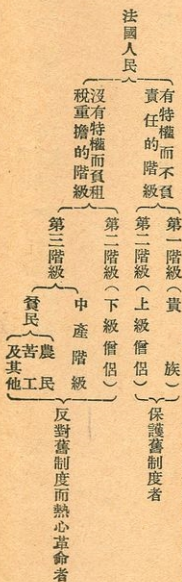 法國人民
有特權而不負
責任的階級
沒有特權而負租
稅重擔的階級
第一階級（貴族）
第二階級（上級僧侶）
第二階級（下級僧侶）
第三階級
中產階級
貧民
農民
苦工
及其他
保護舊制度者
反對舊制度而熱心革命者